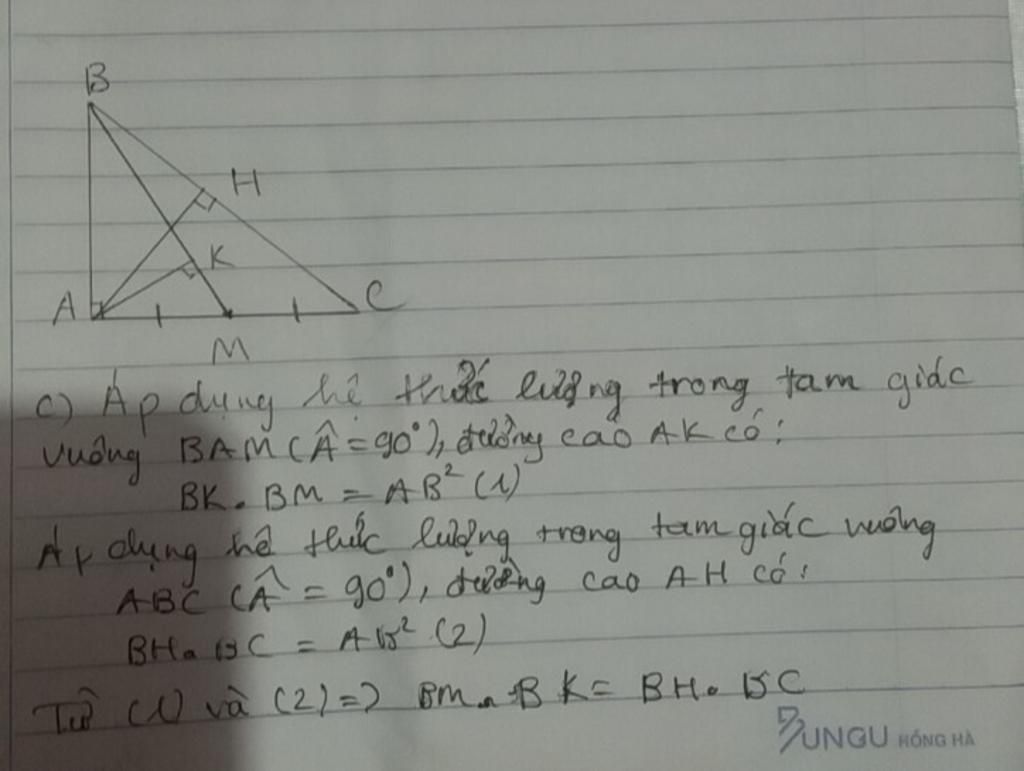 B
H
K
A
C
M
c) Áp dụng hệ thức lượng trong tam giác
vuông BAM (Â = 90°), đường cao AK có:
BK . BM = AB² (1)
Áp dụng hệ thức lượng trong tam giác vuông
ABC (Â = 90°), đường cao AH có:
BH . BC = AB² (2)
Từ (1) và (2) => BM . BK = BH . BC
UNGU HỒNG HÀ